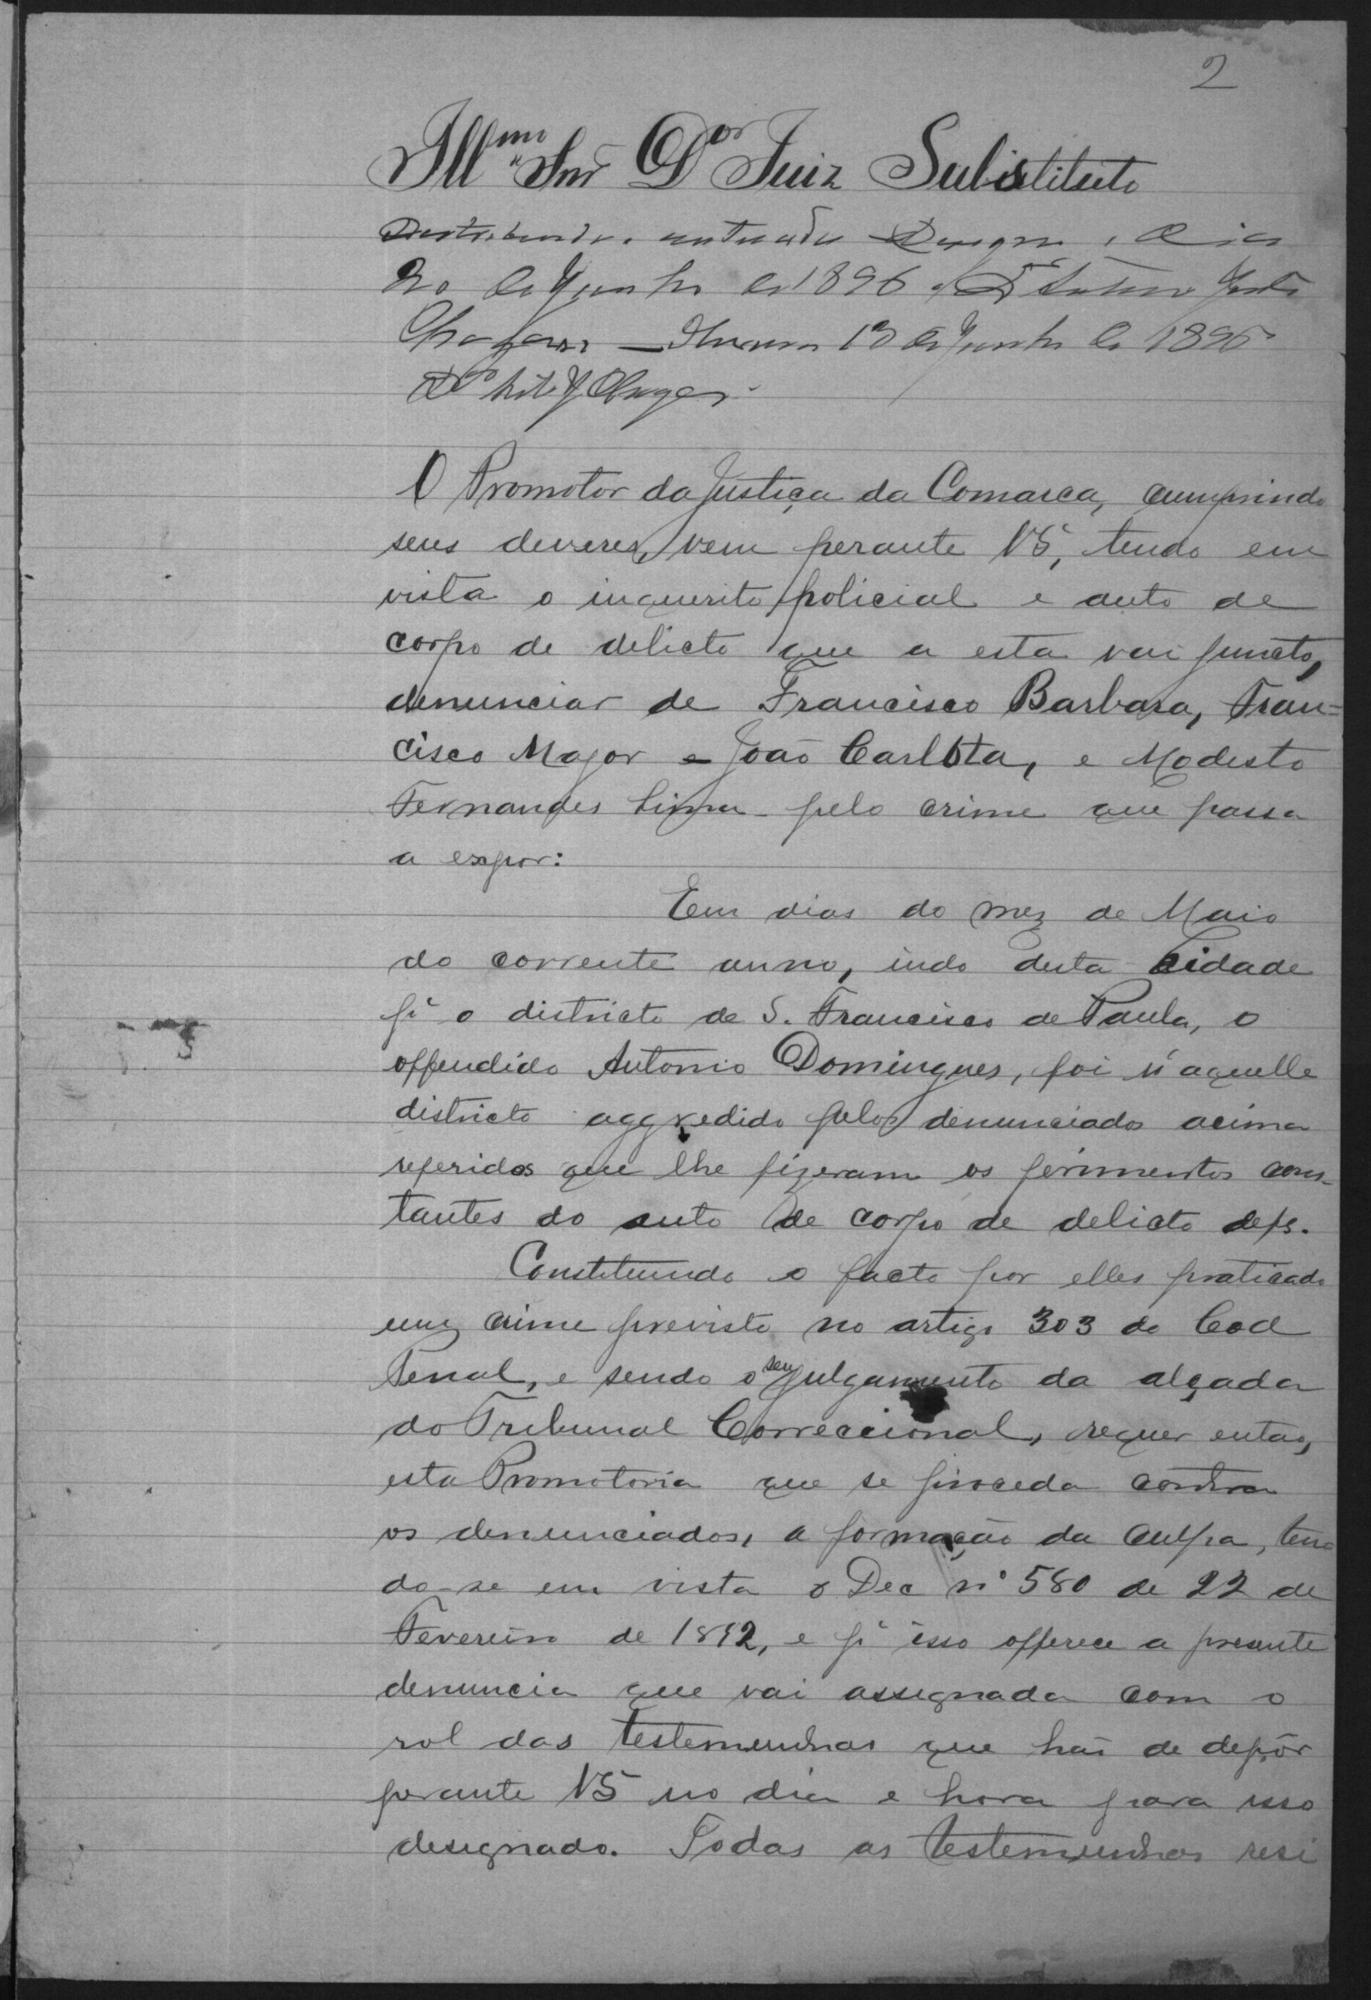 2
Ill^mo Snr D^or Juiz Substituto
Distribuida, autuada Designo o dia
20 de Junho de 1896
13 de Junho de 1896
O Promotor da Justiça da Comarca, cumprindo
seus deveres, vem perante VS, tendo em
vista o inquerito policial e auto de
corpo de delicto que a esta vai juncto,
denunciar de Francisco Barbara, Fran=
cisco Major e João Carlota, e Modesto
Fernandes Lima pelo crime que passa
a expor:
Em dias do mez de Maio
do corrente anno, indo desta Cidade
p^a o districto de S. Francisco de Paula, o
offendido Antonio Domingues, foi n'aquelle
districto aggredido pelos denunciados acima
referidos que lhe fizeram os ferimentos cons-
tantes do auto de corpo de delicto de fs.
Constituindo o facto por elles praticado
um crime previsto no artigo 303 do Cod
Penal, e sendo o seu julgamento da alçada
do Tribunal Correccional, requer entao,
esta Promotoria que se proceda contra
os denunciados, a formação da culpa, ten
do-se em vista o Dec nº 580 de 22 de
Fevereiro de 1892, e p^r isso offerece a presente
denuncia que vai assegnada com o
rol das testemunhas que hão de depôr
perante VS no dia e hora para isso
designado. Todas as testemunhas resi